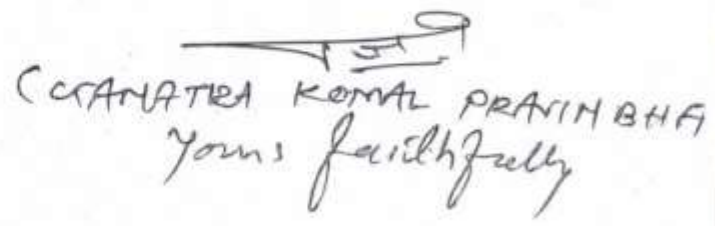 (GANATRA KOMAL PRAVINBHA
Yours faithfully